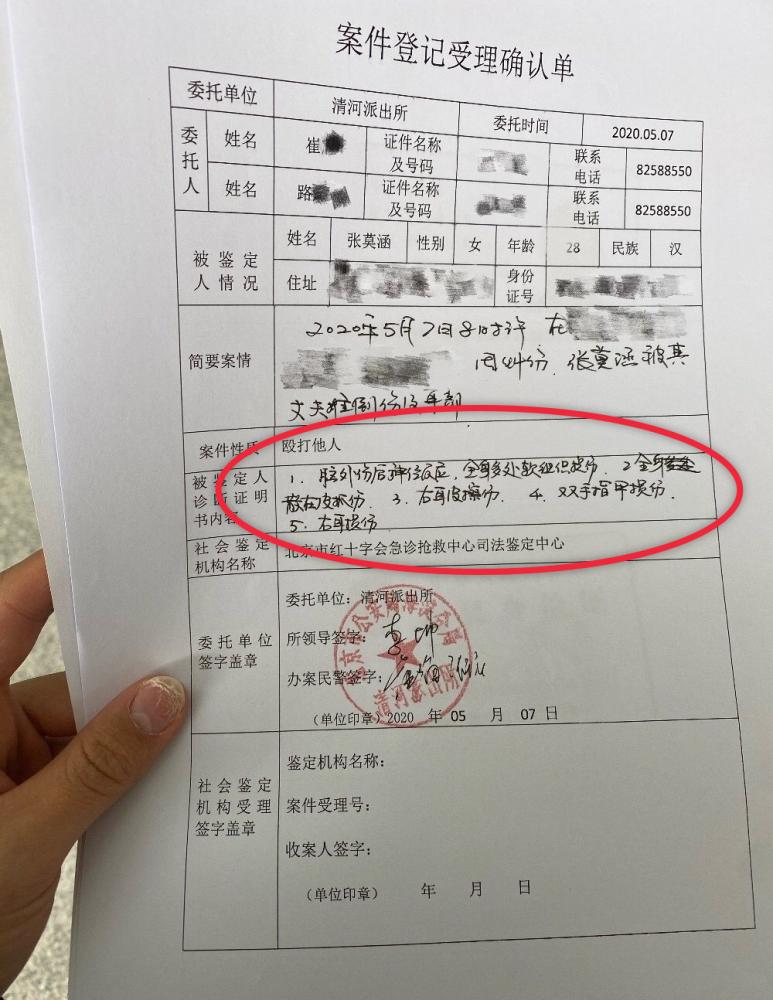 案件登记受理确认单
委托单位 清河派出所 委托时间 2020.05.07
委托人 姓名 崔 证件名称及号码 联系电话 82588550
姓名 路 证件名称及号码 联系电话 82588550
被鉴定人情况 姓名 张莫涵 性别 女 年龄 28 民族 汉
住址 身份证号
简要案情 2020年5月7日8时许 在
张莫涵被其
丈夫
案件性质 殴打他人
被鉴定人诊断证明书内容 1. 脑外伤后神经反应, 全身多处软组织损伤. 2 全身多处
皮擦伤 3. 右耳皮擦伤. 4. 双手指甲损伤.
5. 右耳损伤
社会鉴定机构名称 北京市红十字会急诊抢救中心司法鉴定中心
委托单位签字盖章 委托单位: 清河派出所
所领导签字:
办案民警签字:
(单位印章) 2020 年 05 月 07 日
清河派出所
社会鉴定机构受理签字盖章 鉴定机构名称:
案件受理号:
收案人签字:
(单位印章) 年 月 日